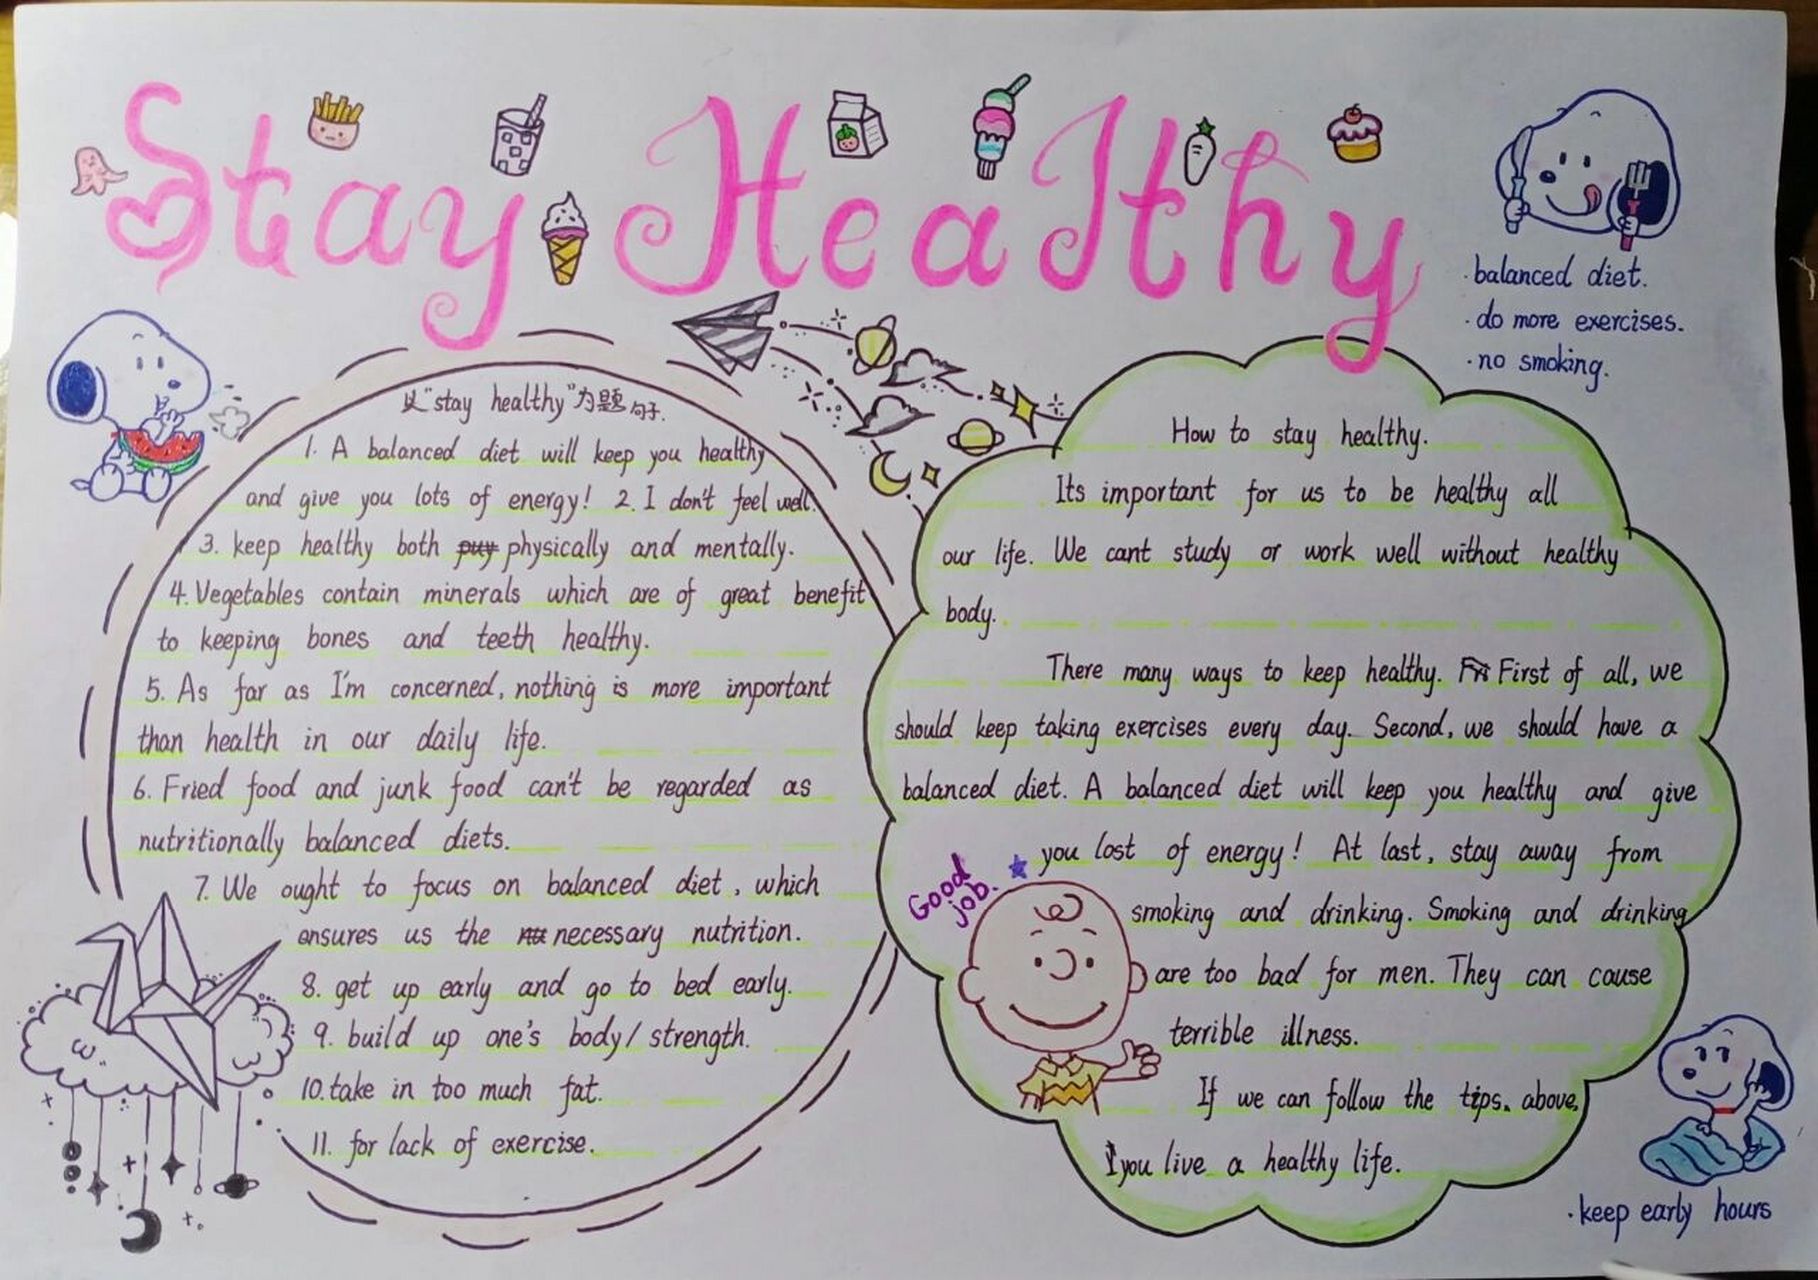 Stay Healthy
· balanced diet.
· do more exercises.
· no smoking.
以"stay healthy"为题句子.
1. A balanced diet will keep you healthy
and give you lots of energy! 2. I don't feel well.
3. keep healthy both physically and mentally.
4. Vegetables contain minerals which are of great benefit
to keeping bones and teeth healthy.
5. As far as I'm concerned, nothing is more important
than health in our daily life.
6. Fried food and junk food can't be regarded as
nutritionally balanced diets.
7. We ought to focus on balanced diet, which
ensures us the necessary nutrition.
8. get up early and go to bed early.
9. build up one's body/ strength.
10. take in too much fat.
11. for lack of exercise.
How to stay healthy.
Its important for us to be healthy all
our life. We cant study or work well without healthy
body.
There many ways to keep healthy. First of all, we
should keep taking exercises every day. Second, we should have a
balanced diet. A balanced diet will keep you healthy and give
you lost of energy! At last, stay away from
smoking and drinking. Smoking and drinking
are too bad for men. They can cause
terrible illness.
If we can follow the tips. above,
you live a healthy life.
Good
job.
· keep early hours